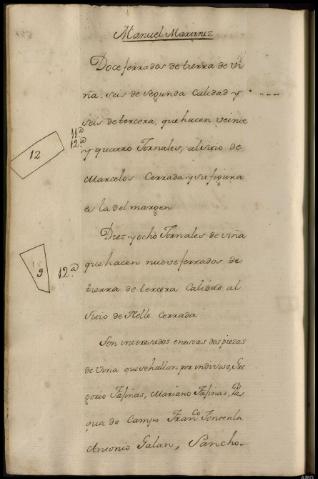 Manuel Martinez
Doce ferrados de tierra de vi
ña, seis de segunda Calidad y
seis de tercera, que hacen veinte
11ª
12ª
12
y quatro Jornales, al sitio de
Marcelos Cerrada y su figura
es la del margen
Diez y ocho Jornales de viña
9
12ª
que hacen nueve ferrados de
tierra de tercera Calidad al
Sitio de Cerrada
Son interesados en estas dos piezas
de viña que se hallan por indiviso,
Mariano
do Campo Franco
Antonio Galan, Sancho